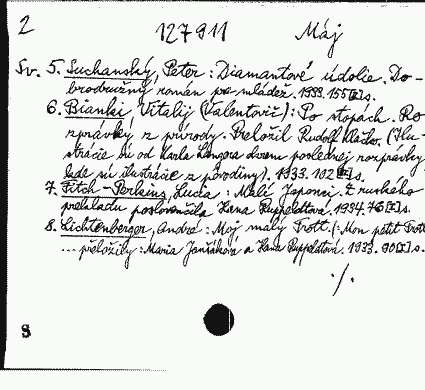 2 127911 Máj
Sv. 5. Suchanský, Peter: Diamantové údolie. Do-
brodružný román pre mládež. 1933. 155 [I] s.
6. Bianki, Vitalij (Valentovič): Po stopách. Ro-
zprávky z prírody. Preložil Rudolf Klačko. (Ilu-
strácie sú od Karla Längora dvom poslednej rozprávky
kde sú ilustrácie z pôrodiny). 1933. 102 s.
7. Fitch-Perkins, Lucia: Malí Japonci. Z ruského
prekladu poslovenčila Hana Ruppeldtová. 1934. 76 [I] s.
8. Lichtenberger, André: Moj malý Trott. (: Mon petit Trott
... přeložily: Maria Jančáková a Hana Ruppeldtová. 1933. 90 [I] s.
./.
8